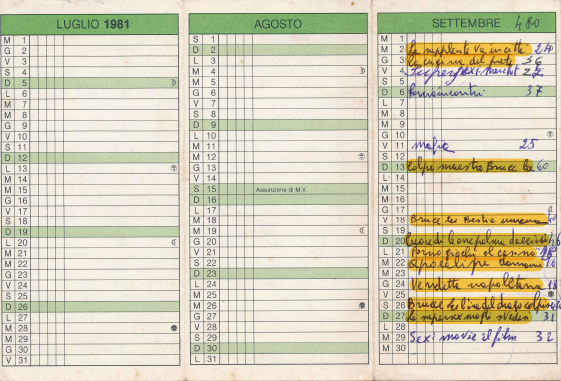 LUGLIO 1981
M 1
G 2
V 3
S 4
D 5
L 6
M 7
M 8
G 9
V 10
S 11
D 12
L 13
M 14
M 15
G 16
V 17
S 18
D 19
L 20
M 21
M 22
G 23
V 24
S 25
D 26
L 27
M 28
M 29
G 30
V 31
AGOSTO
S 1
D 2
L 3
M 4
M 5
G 6
V 7
S 8
D 9
L 10
M 11
M 12
G 13
V 14
S 15 Assunzione di M.V.
D 16
L 17
M 18
M 19
G 20
V 21
S 22
D 23
L 24
M 25
M 26
G 27
V 28
S 29
D 30
L 31
SETTEMBRE 480
M 1
M 2 La supplente va in città 24
G 3 La cugina del prete 36
V 4 22
S 5
D 6 Pornoincontri 37
L 7
M 8
M 9
G 10
V 11 mafia 25
S 12
D 13 Colpo maestro Bruce Lee 60
L 14
M 15
M 16
G 17
V 18 Bruce Lee Bestia umana
S 19
D 20
L 21 Porno giochi al casino
M 22 Apocalipse domani
M 23
G 24 Vendetta napoletana 18
V 25
S 26 Bruce Lee
D 27 31
L 28
M 29 Sexi movie il film 32
M 30